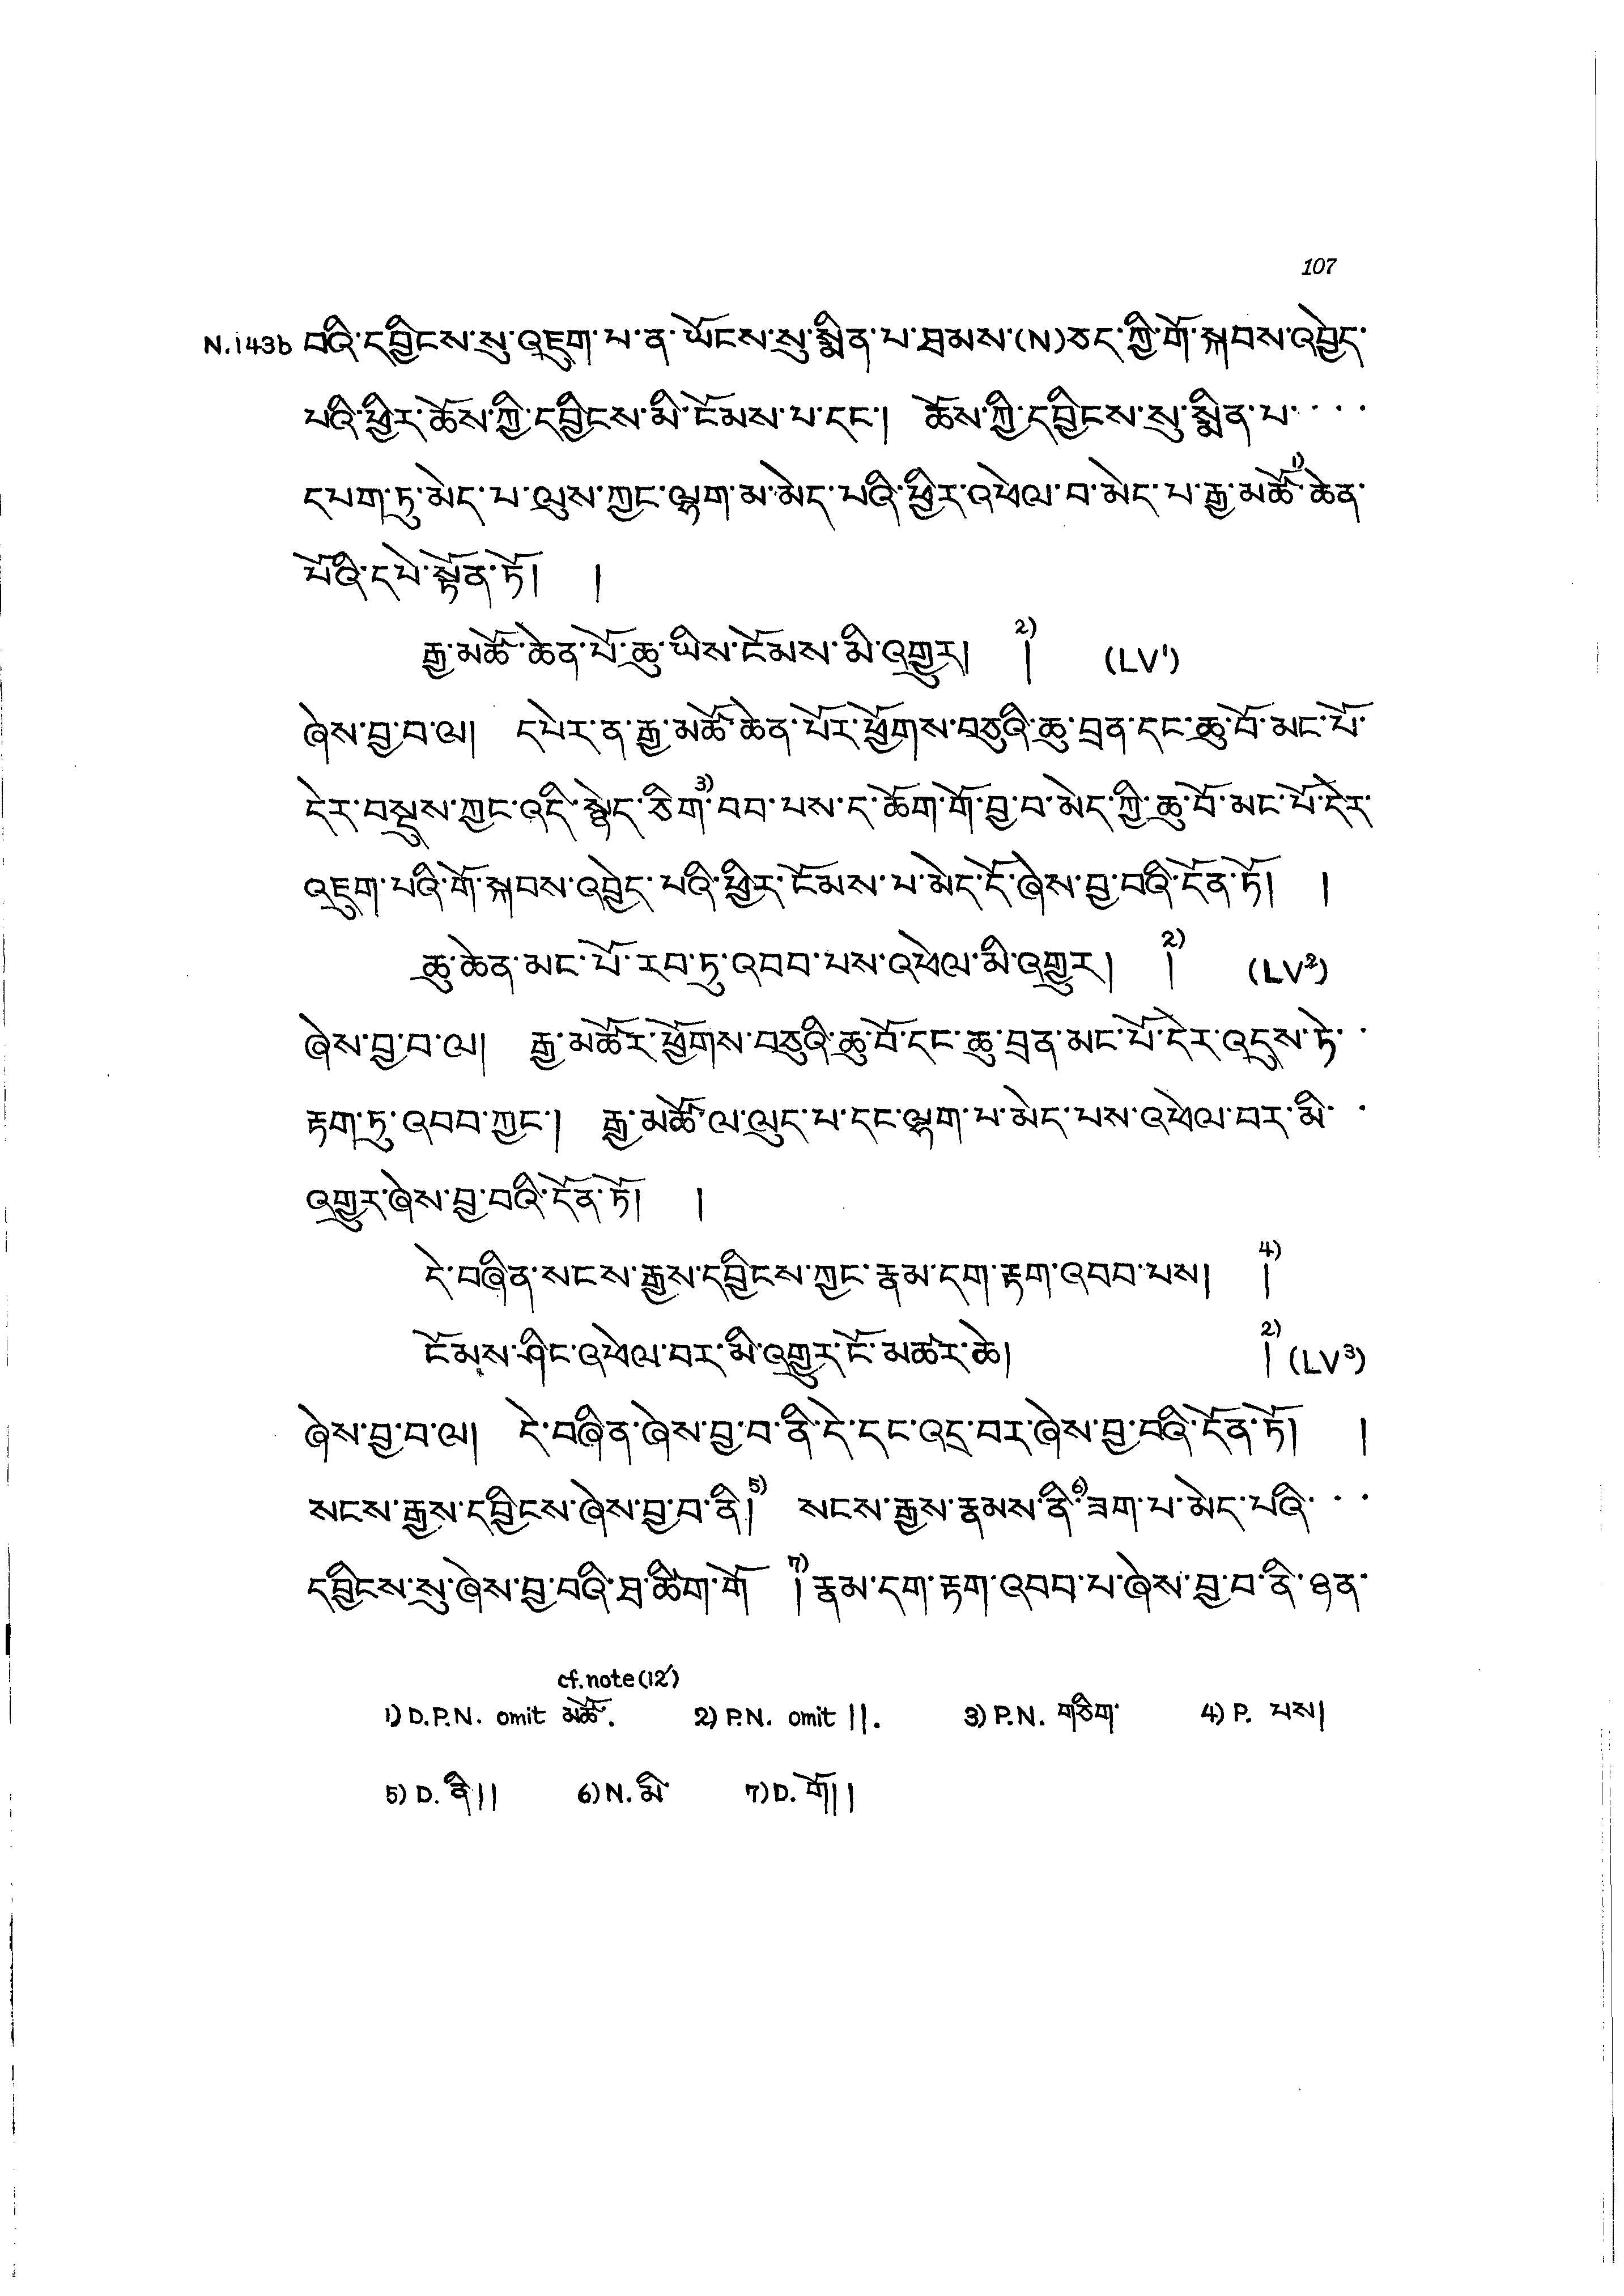 107
N.143b བའི་དབྱིངས་སུ་འཇུག་པ་ན་ཡོངས་སུ་སྨིན་པ་ཐམས་(N)ཅད་ཀྱི་གོ་སྐབས་འབྱེད་
པའི་ཕྱིར་ཆོས་ཀྱི་དབྱིངས་མི་ངོམས་པ་དང་། ཆོས་ཀྱི་དབྱིངས་སུ་སྨིན་པ་····
དཔག་ཏུ་མེད་པ་ལུས་ཀྱང་ལྷག་མ་མེད་པའི་ཕྱིར་འཕེལ་བ་མེད་པ་རྒྱ་མཚོ་1)ཆེན་
པོའི་དཔེ་སྟོན་ཏོ། །
རྒྱ་མཚོ་ཆེན་པོ་ཆུ་ཡིས་ངོམས་མི་འགྱུར། །2) (LV¹)
ཞེས་བྱ་བ་ལ། དཔེར་ན་རྒྱ་མཚོ་ཆེན་པོར་ཕྱོགས་བཅུའི་ཆུ་བྲན་དང་ཆུ་བོ་མང་པོ་
དེར་བསྡུས་ཀྱང་འདི་སྙེད་ཅིག་3)བབ་པས་ད་ཆོག་གོ་བྱ་བ་མེད་ཀྱི་ཆུ་བོ་མང་པོ་དེར་
འཇུག་པའི་གོ་སྐབས་འབྱེད་པའི་ཕྱིར་ངོམས་པ་མེད་དོ་ཞེས་བྱ་བའི་དོན་ཏོ། །
ཆུ་ཆེན་མང་པོ་རབ་ཏུ་འབབ་པས་འཕེལ་མི་འགྱུར། །2) (LV²)
ཞེས་བྱ་བ་ལ། རྒྱ་མཚོར་ཕྱོགས་བཅུའི་ཆུ་བོ་དང་ཆུ་བྲན་མང་པོ་དེར་འདུས་ཏེ་·
རྟག་ཏུ་འབབ་ཀྱང་། རྒྱ་མཚོ་ལ་ལུད་པ་དང་ལྷག་པ་མེད་པས་འཕེལ་བར་མི་·
འགྱུར་ཞེས་བྱ་བའི་དོན་ཏོ། །
དེ་བཞིན་སངས་རྒྱས་དབྱིངས་ཀྱང་རྣམ་དག་རྟག་འབབ་པས། །4)
ངོམས་ཤིང་འཕེལ་བར་མི་འགྱུར་ངོ་མཚར་ཆེ། །2) (LV³)
ཞེས་བྱ་བ་ལ། དེ་བཞིན་ཞེས་བྱ་བ་ནི་དེ་དང་འདྲ་བར་ཞེས་བྱ་བའི་དོན་ཏོ། །
སངས་རྒྱས་དབྱིངས་ཞེས་བྱ་བ་ནི།5) སངས་རྒྱས་རྣམས་ནི་6)ཟག་པ་མེད་པའི་···
དབྱིངས་སུ་ཞེས་བྱ་བའི་ཐ་ཚིག་གོ །7)རྣམ་དག་རྟག་འབབ་པ་ཞེས་བྱ་བ་ནི་ཉན་
cf.note(12)
1) D.P.N. omit མཚོ་. 2) P.N. omit །།. 3) P.N. གཅིག་ 4) P. པས།
5) D. ནི།། 6) N. མི་ 7) D. གོ།།